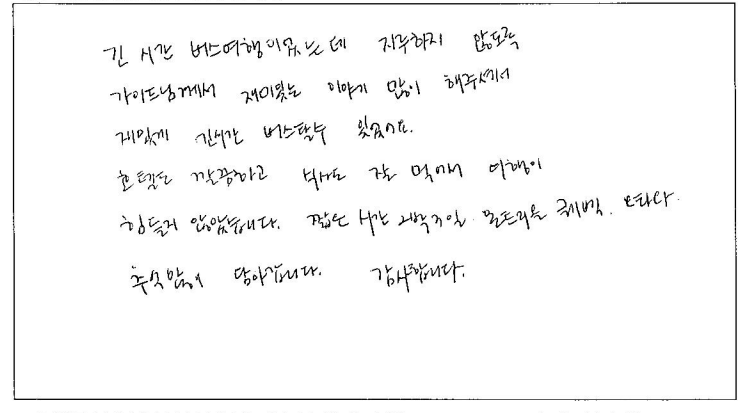 긴 시간 버스여행이었는데 지루하지 않도록
가이드님께서 재미있는 이야기 많이 해주셔서
재밌게 긴시간 버스탈수 있었어요.
호텔도 깔끔하고 식사도 잘 먹어서 여행이
힘들지 않았습니다. 짧은 시간 2박3일 몬트리올 퀘벡. 오타와
추억많이 담아갑니다. 감사합니다.